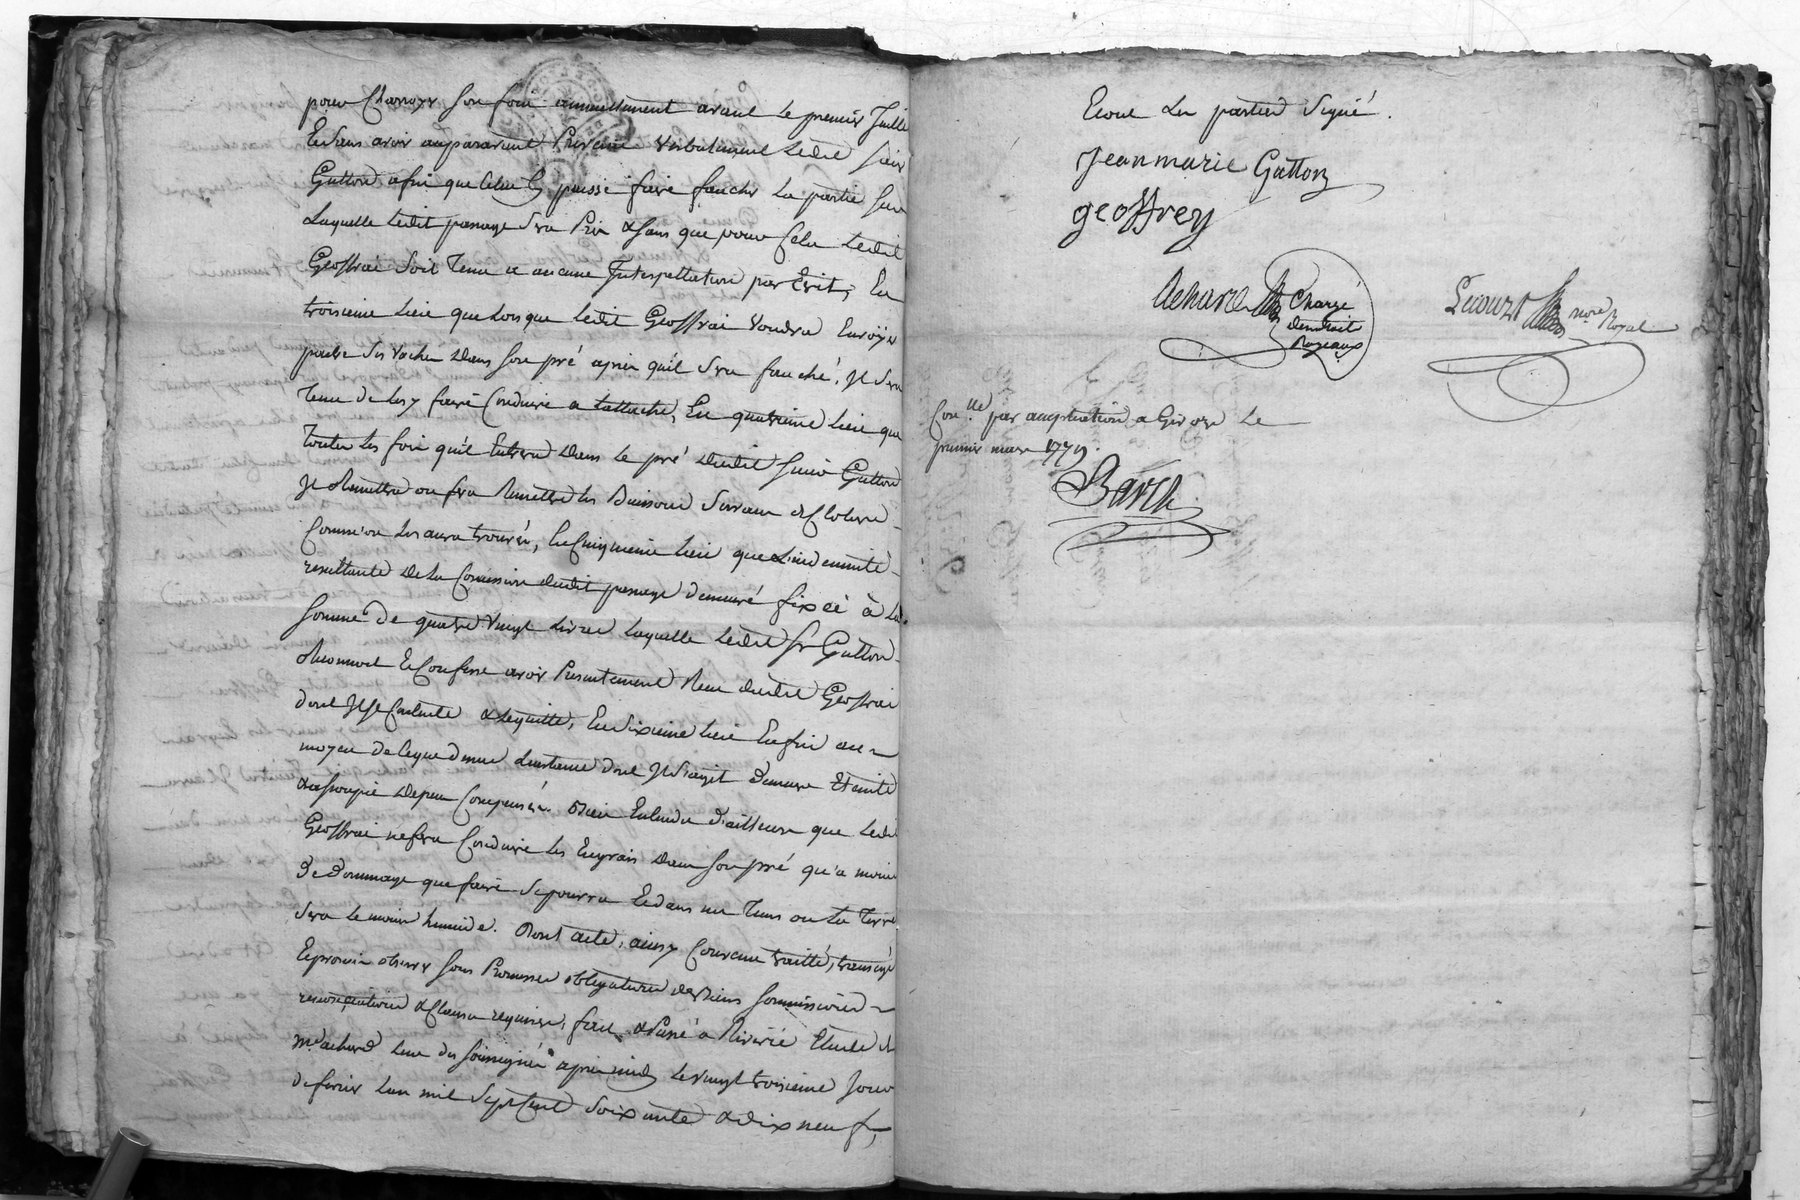 pour Charroyer son foin annuellement avant le premier Juillet
Et sans avoir auparavant Prevenu verbalement Ledit sieur
Gutton afin que Celui Cy puisse faire faucher La partie sur
Laquelle Ledit passage sera Pris & sans que pour Cela Ledit
Geoffrai soit Tenu a aucune Interpellation par Ecrit, En
troisieme Lieu que Lorsque Ledit Geoffrai voudra Envoyer
paitre ses vaches Dans son pré après qu'il sera fauché, Il sera
Tenu de Les y faire Conduire a L'attache, En quatrieme Lieu que
Toutes Les fois qu'il Entrera Dans Le pré Dudit sieur Gutton
Il Remettra ou fera Remettre Les Buissons servant de Cloture
Comm'on Les aura trouvés, En Cinquieme Lieu que L'indemnité
resultante De La Concession dudit passage Demeure fixée à La
somme de quatre vingt Livres Laquelle Ledit Sr Gutton
Reconnoit & Confesse avoir Presentement Reçu dudit Geoffrai
dont Il se Contente & L'en quitte, En sixieme Lieu Enfin au
moyen de Ce que dessus L'instance dont Il s'agit Demeure Eteinte
& assoupie Depens Compensés. Bien Entendu d'ailleurs que Ledit
Geoffrai ne fera Conduire Les Engrais Dans son pré qu'a moins
De Dommage que faire se pourra Et dans un Tems ou La Terre
sera Le moins humide. Dont acte, ainsy Convenu traitté, transigé
Et promis observer sous Promesses obligations de Biens soumissions
renonciations & Clauses requises, fait & Passé a Riverie Etude de
me achard L'un des soussignés après midy Le vingt troisieme Jour
de fevrier L'an mil sept Cent soixante & dix neuf,
Et ont Les parties signé.
Jean marie Gutton
geoffrey
Achard
Chargé
Lecourt nore Royal
Conlle par ampliation a Givors Le
premier mars 1779.